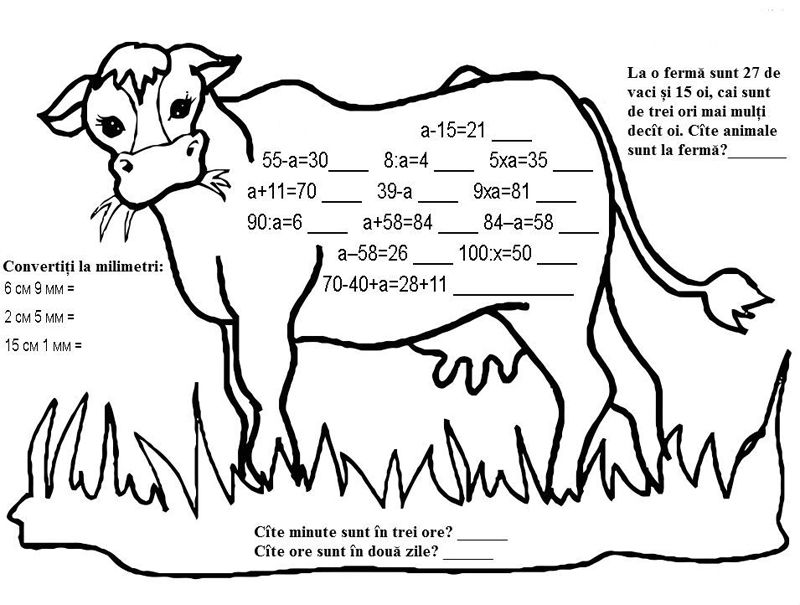 La o fermă sunt 27 de
vaci și 15 oi, cai sunt
de trei ori mai mulți
decît oi. Cîte animale
sunt la fermă?_______
a-15=21 ____
55-a=30____ 8:a=4 ____ 5xa=35 ____
a+11=70 ____ 39-a ____ 9xa=81 ____
90:a=6 ____ a+58=84 ____ 84–a=58 ____
a–58=26 ____ 100:x=50 ____
70-40+a=28+11 ____________
Convertiți la milimetri:
6 см 9 мм =
2 см 5 мм =
15 см 1 мм =
Cîte minute sunt în trei ore? ______
Cîte ore sunt în două zile? ______